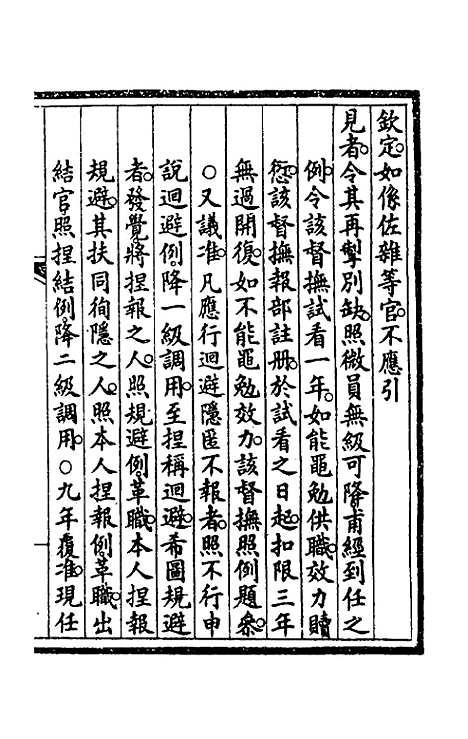 欽定。如係佐雜等官。不應引
見者。令其再掣別缺。照微員無級可降。甫經到任之
例。令該督撫試看一年。如能黽勉供職。效力贖
愆。該督撫報部註冊。於試看之日起。扣限三年
無過開復。如不能黽勉效力。該督撫照例題參。
○又議准。凡應行迴避隱匿不報者。照不行申
說迴避例。降一級調用。至捏稱迴避。希圖規避
者。發覺。將捏報之人。照規避例。革職。本人捏報
規避。其扶同徇隱之人。照本人捏報例。革職。出
結官照捏結例。降二級調用。○九年覆准。現任